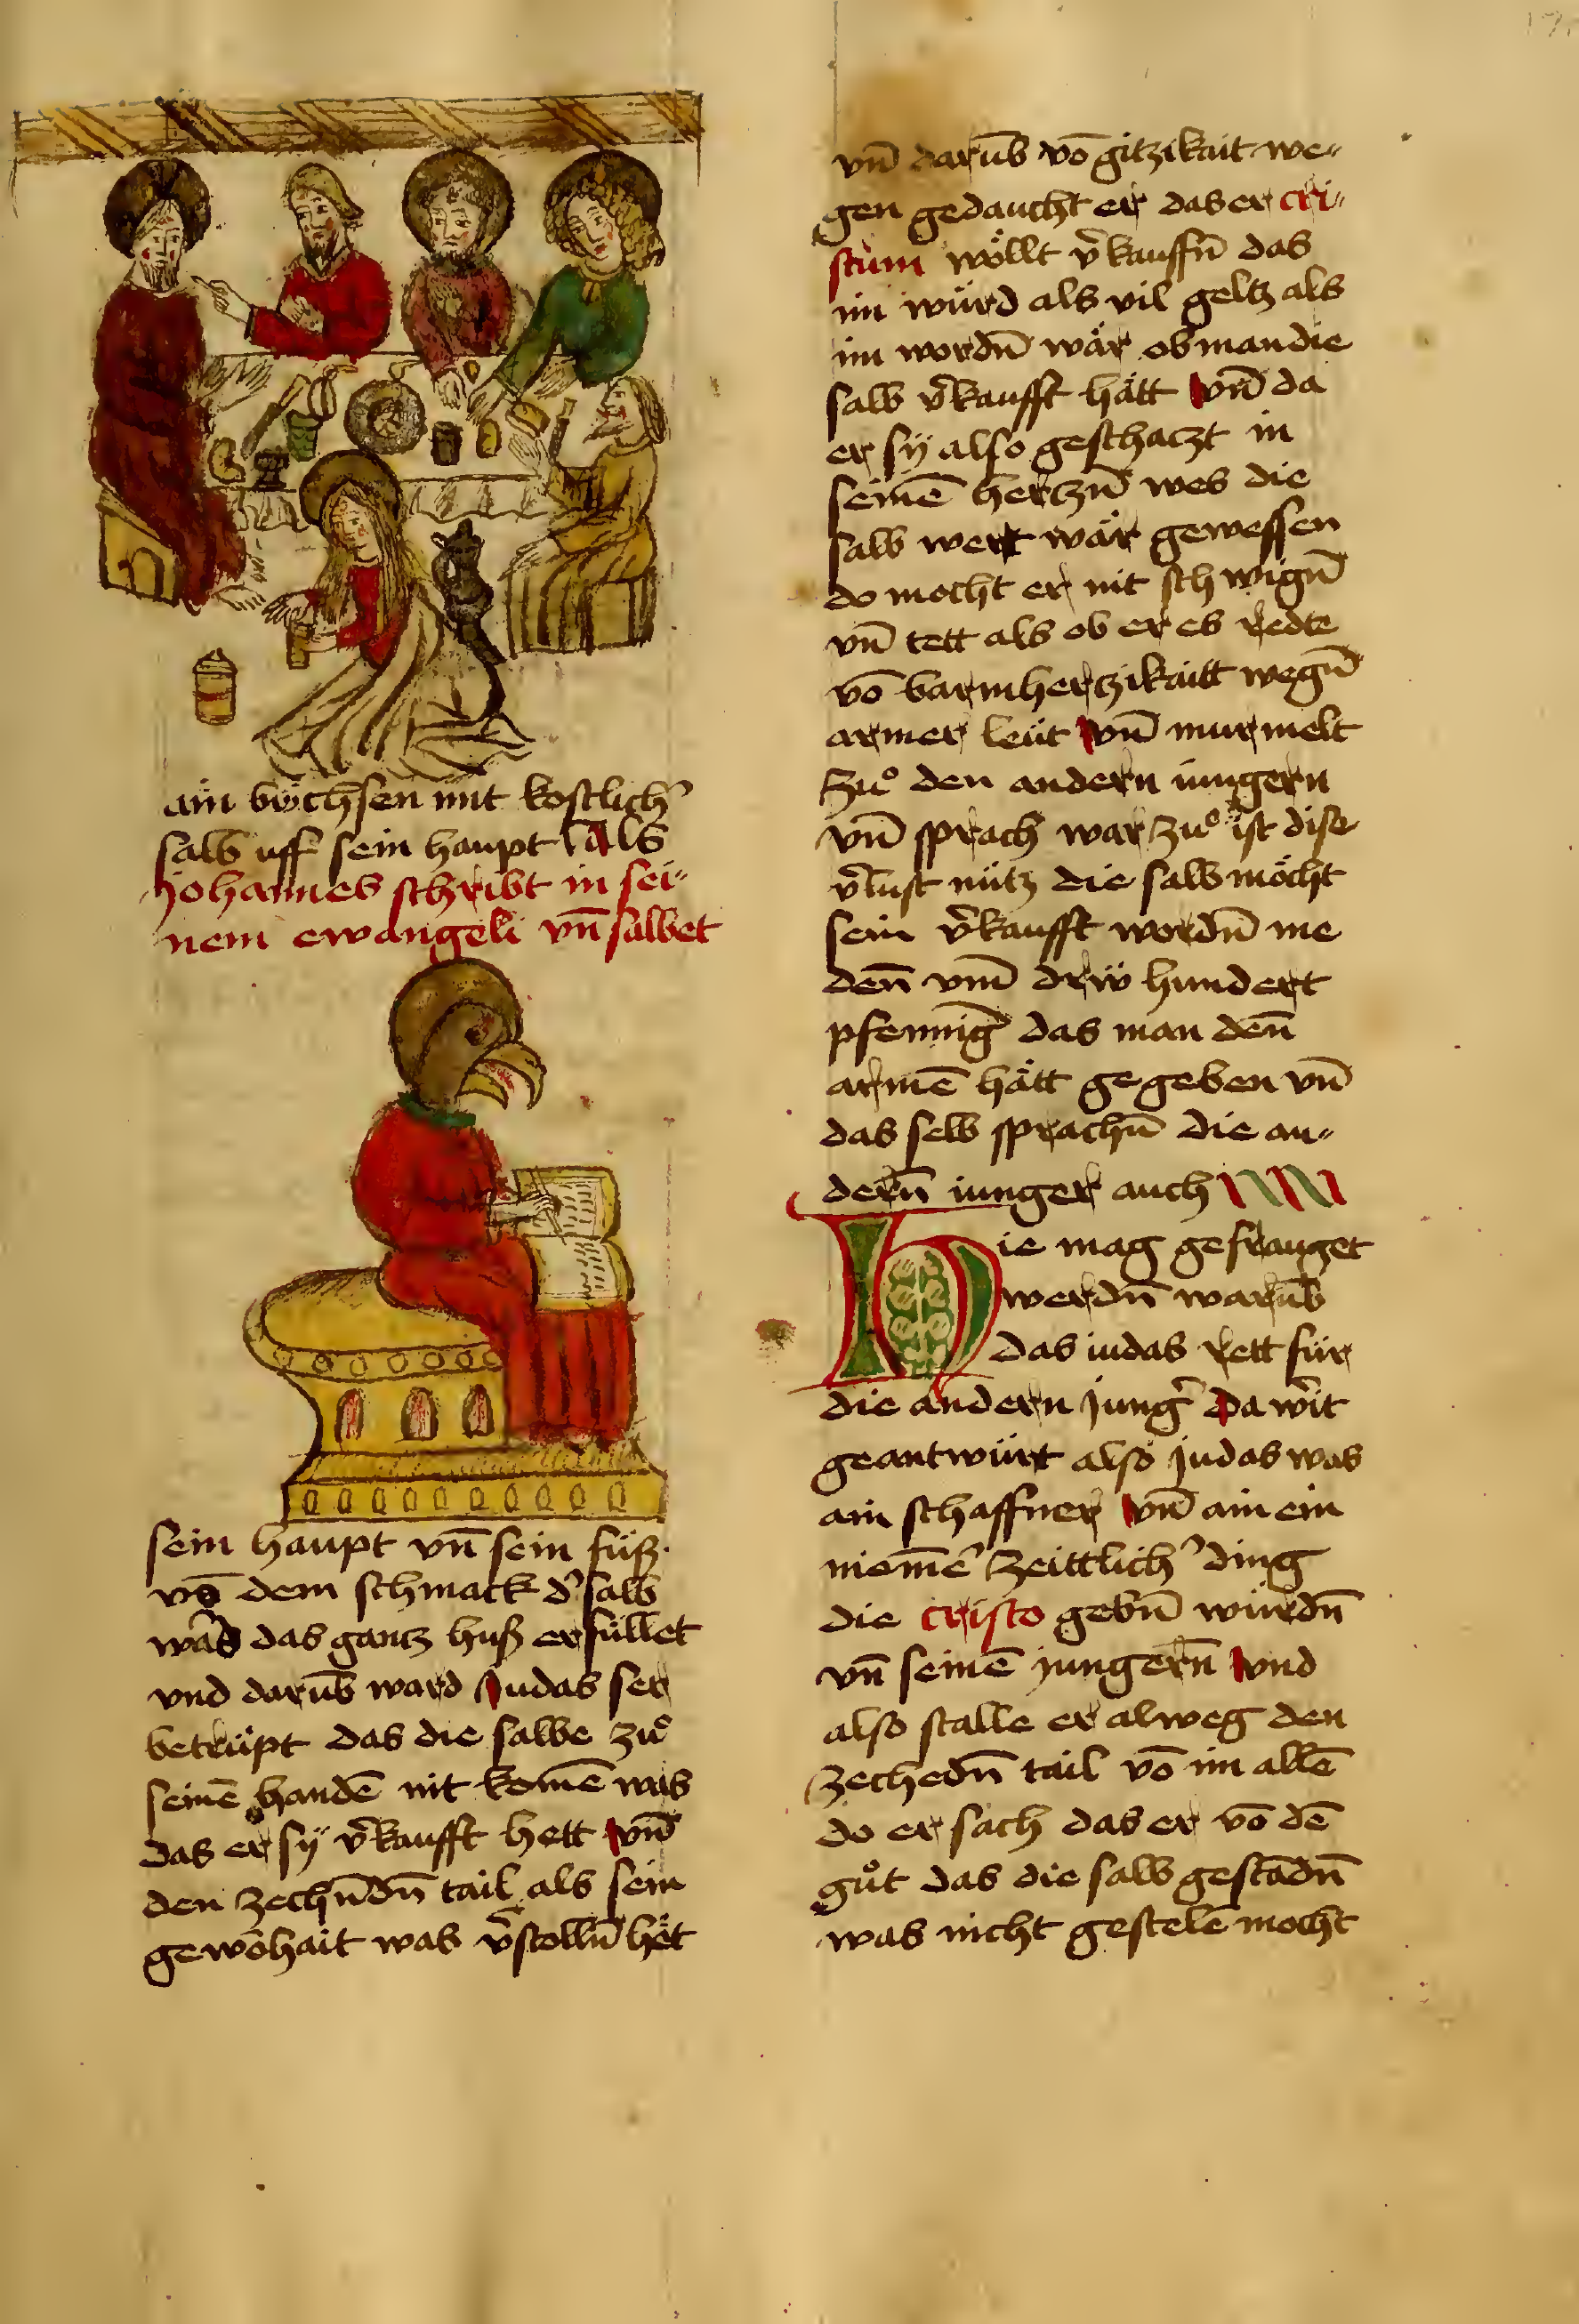 ain bv̈chsen mit kostlich̕
salb uff sein haupt als
Johannes schribt in sei-
nem ewangeli vn̄ salbet
sein haupt vn̄ sein füß.
vō dem schmack d̕ salb
ward das gantz huß erfüllet
vnd darūb ward Judas ser
betrüpt das die salbe zuͦ
seinē handē nit komē was
das er sÿ v̕kaufft hett vn̄
den zechn̄dn̄ tail als sein
gewōhait was v̕stolln̄ het
vn̄ darūb vō gitzikait we-
gen gedaucht er das er cri-
stum wöllt v̕kauffn̄ das
im würd als vil geltz als
im wordn̄ wär ob man die
salb v̕kaufft hätt vn̄ da
er sÿ also geschaczt in
seinē hertzn̄ wes die
salb wert wär gewessen
do mocht er nit schwign̄
vn̄ tett als ob er es redte
vō barmhertzikaitt wegn̄
armer leüt vn̄ murmelt
zuͦ den andern iungern
vn̄ sprach war zuͦ ist dise
v̕lust nütz die salb möcht
sein v̕kaufft wordn̄ me
den̄ vm̄ drẅ hundert
pfennig̕ das man den̄
armē hätt gegeben vn̄
das selb sprachn̄ die an-
dern̄ iunger auch
Hie mag gefrauget
werdn̄ warūb
das iudas rett für
die andern jung̕ Da wirt
geantwürt also judas was
ain schaffner vn̄ ain ein
niem̄e̕ zeittlich̕ ding
die cristo gebn̄ würdn̄
vn̄ seinē jungern̄ vnd
also stalle er alweg den
zechedn̄ tail vō im allē
do er sach das er vō dē
guͦt das die salb gestādn̄
was nicht gestelē mocht